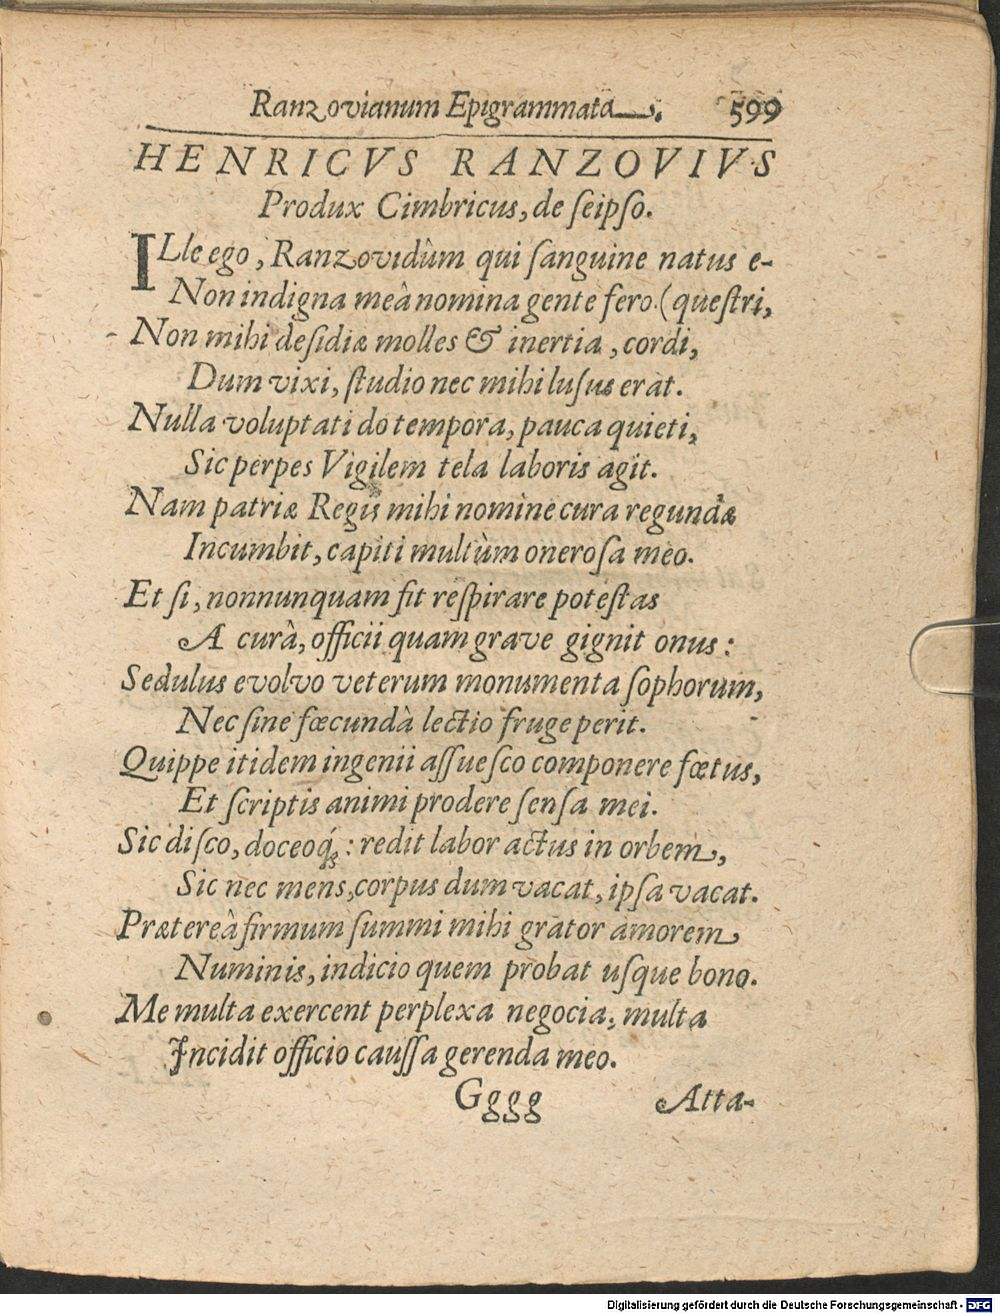 Ranzovianum Epigrammata. 599
HENRICVS RANZOVIVS
Produx Cimbricus, de ſeipſo.
ILle ego, Ranzovidùm qui ſanguine natus e-
Non indigna meâ nomina gente fero. (queſtri,
Non mihi deſidiæ molles & inertia, cordi,
Dum vixi, ſtudio nec mihi luſus erat.
Nulla voluptati do tempora, pauca quieti,
Sic perpes Vigilem tela laboris agit.
Nam patriæ Regis mihi nomine cura regundæ
Incumbit, capiti multùm oneroſa meo.
Et ſi, nonnunquam fit reſpirare poteſtas
A curâ, officii quam grave gignit onus:
Sedulus evolvo veterum monumenta ſophorum,
Nec ſine fœcundâ lectio fruge perit.
Quippe itidem ingenii aſſueſco componere fœtus,
Et ſcriptis animi prodere ſenſa mei.
Sic diſco, doceoq́;: redit labor actus in orbem,
Sic nec mens, corpus dum vacat, ipſa vacat.
Prætereà firmum ſummi mihi grator amorem
Numinis, indicio quem probat uſque bono.
Me multa exercent perplexa negocia, multa
Incidit officio cauſſa gerenda meo.
Gggg Atta-
Digitalisierung gefördert durch die Deutsche Forschungsgemeinschaft - DFG